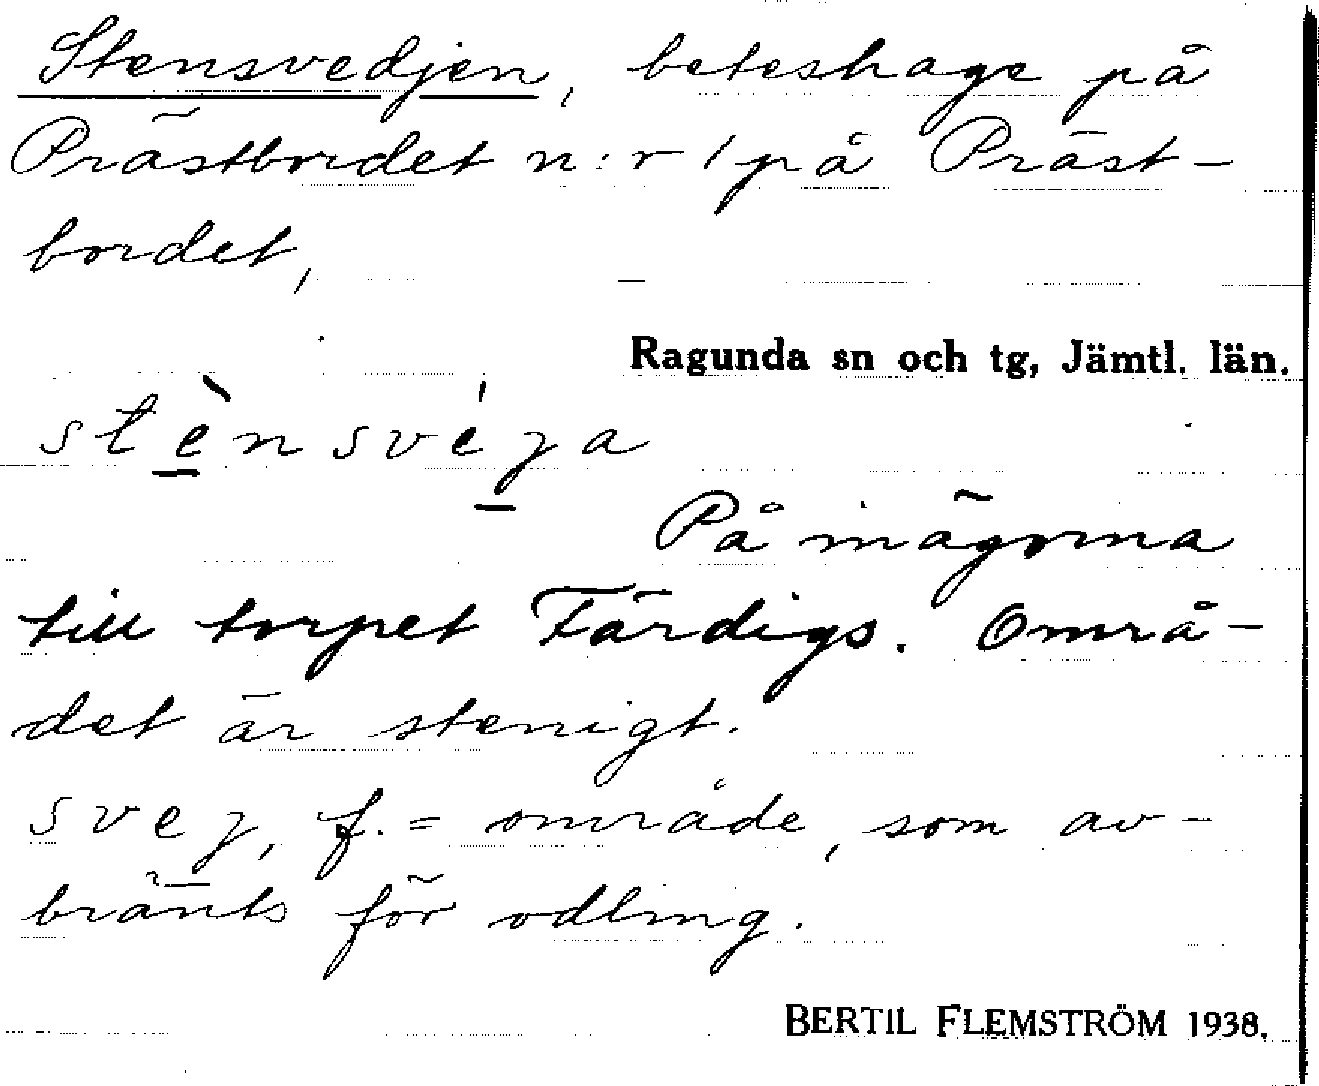 Stensvedjen, beteshage på
Prästbordet n:r 1 på Präst-
bordet,
Ragunda sn och tg, Jämtl. län.
stènsvéja
På inägorna
till torpet Färdigs. Områ-
det är stenigt.
svej, f. = område, som av-
bränts för odling.
BERTIL FLEMSTRÖM 1938.